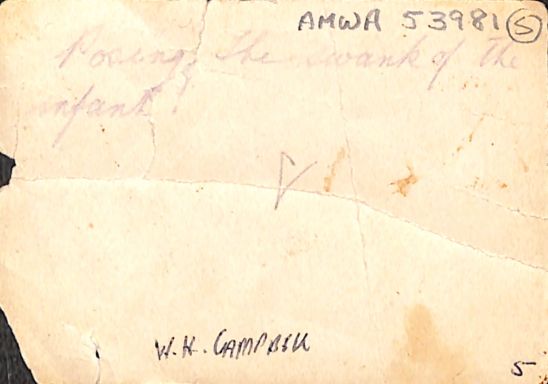 AMWA 53981 5
Posing! The swank of the
infant!
W.H. CAMPBELL
5